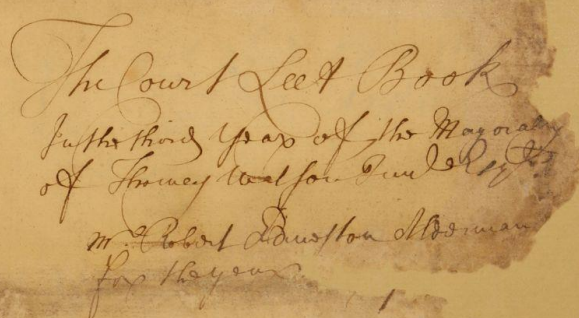 The Court Leet Book
In the third year of the Mayoralty
of Thomas Watson Junr Esqr
Mr Robert Alderman
for the year